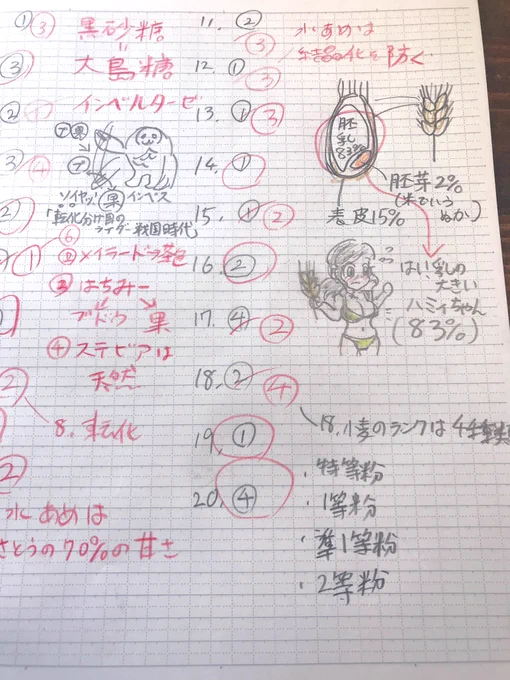 ① ③ 黒砂糖
③ 大島糖
② ① インベルターゼ
3 ④
果
ソイヤッ! 果 インベス
「転化分け目の
ライダー戦国時代」
① ⑥
② メイラード→茶色
③ はちみー
ブドウ 果
④ ステビアは
天然
②
8. 転化
②
水あめは
さとうの70%の甘さ
11. ② ③
12. ① ③
13. ① ③
14. ①
15. ① ②
16. ②
17. ④ ②
18. ② ④
19. ①
20. ④
水あめは
結晶化を防ぐ
胚乳
83%
胚芽2%
(米でいう
ぬか)
表皮15%
はい!乳の
大きい
ハミィちゃん
(83%)
18. 小麦のランクは4種類
・特等粉
・1等粉
・準1等粉
・2等粉